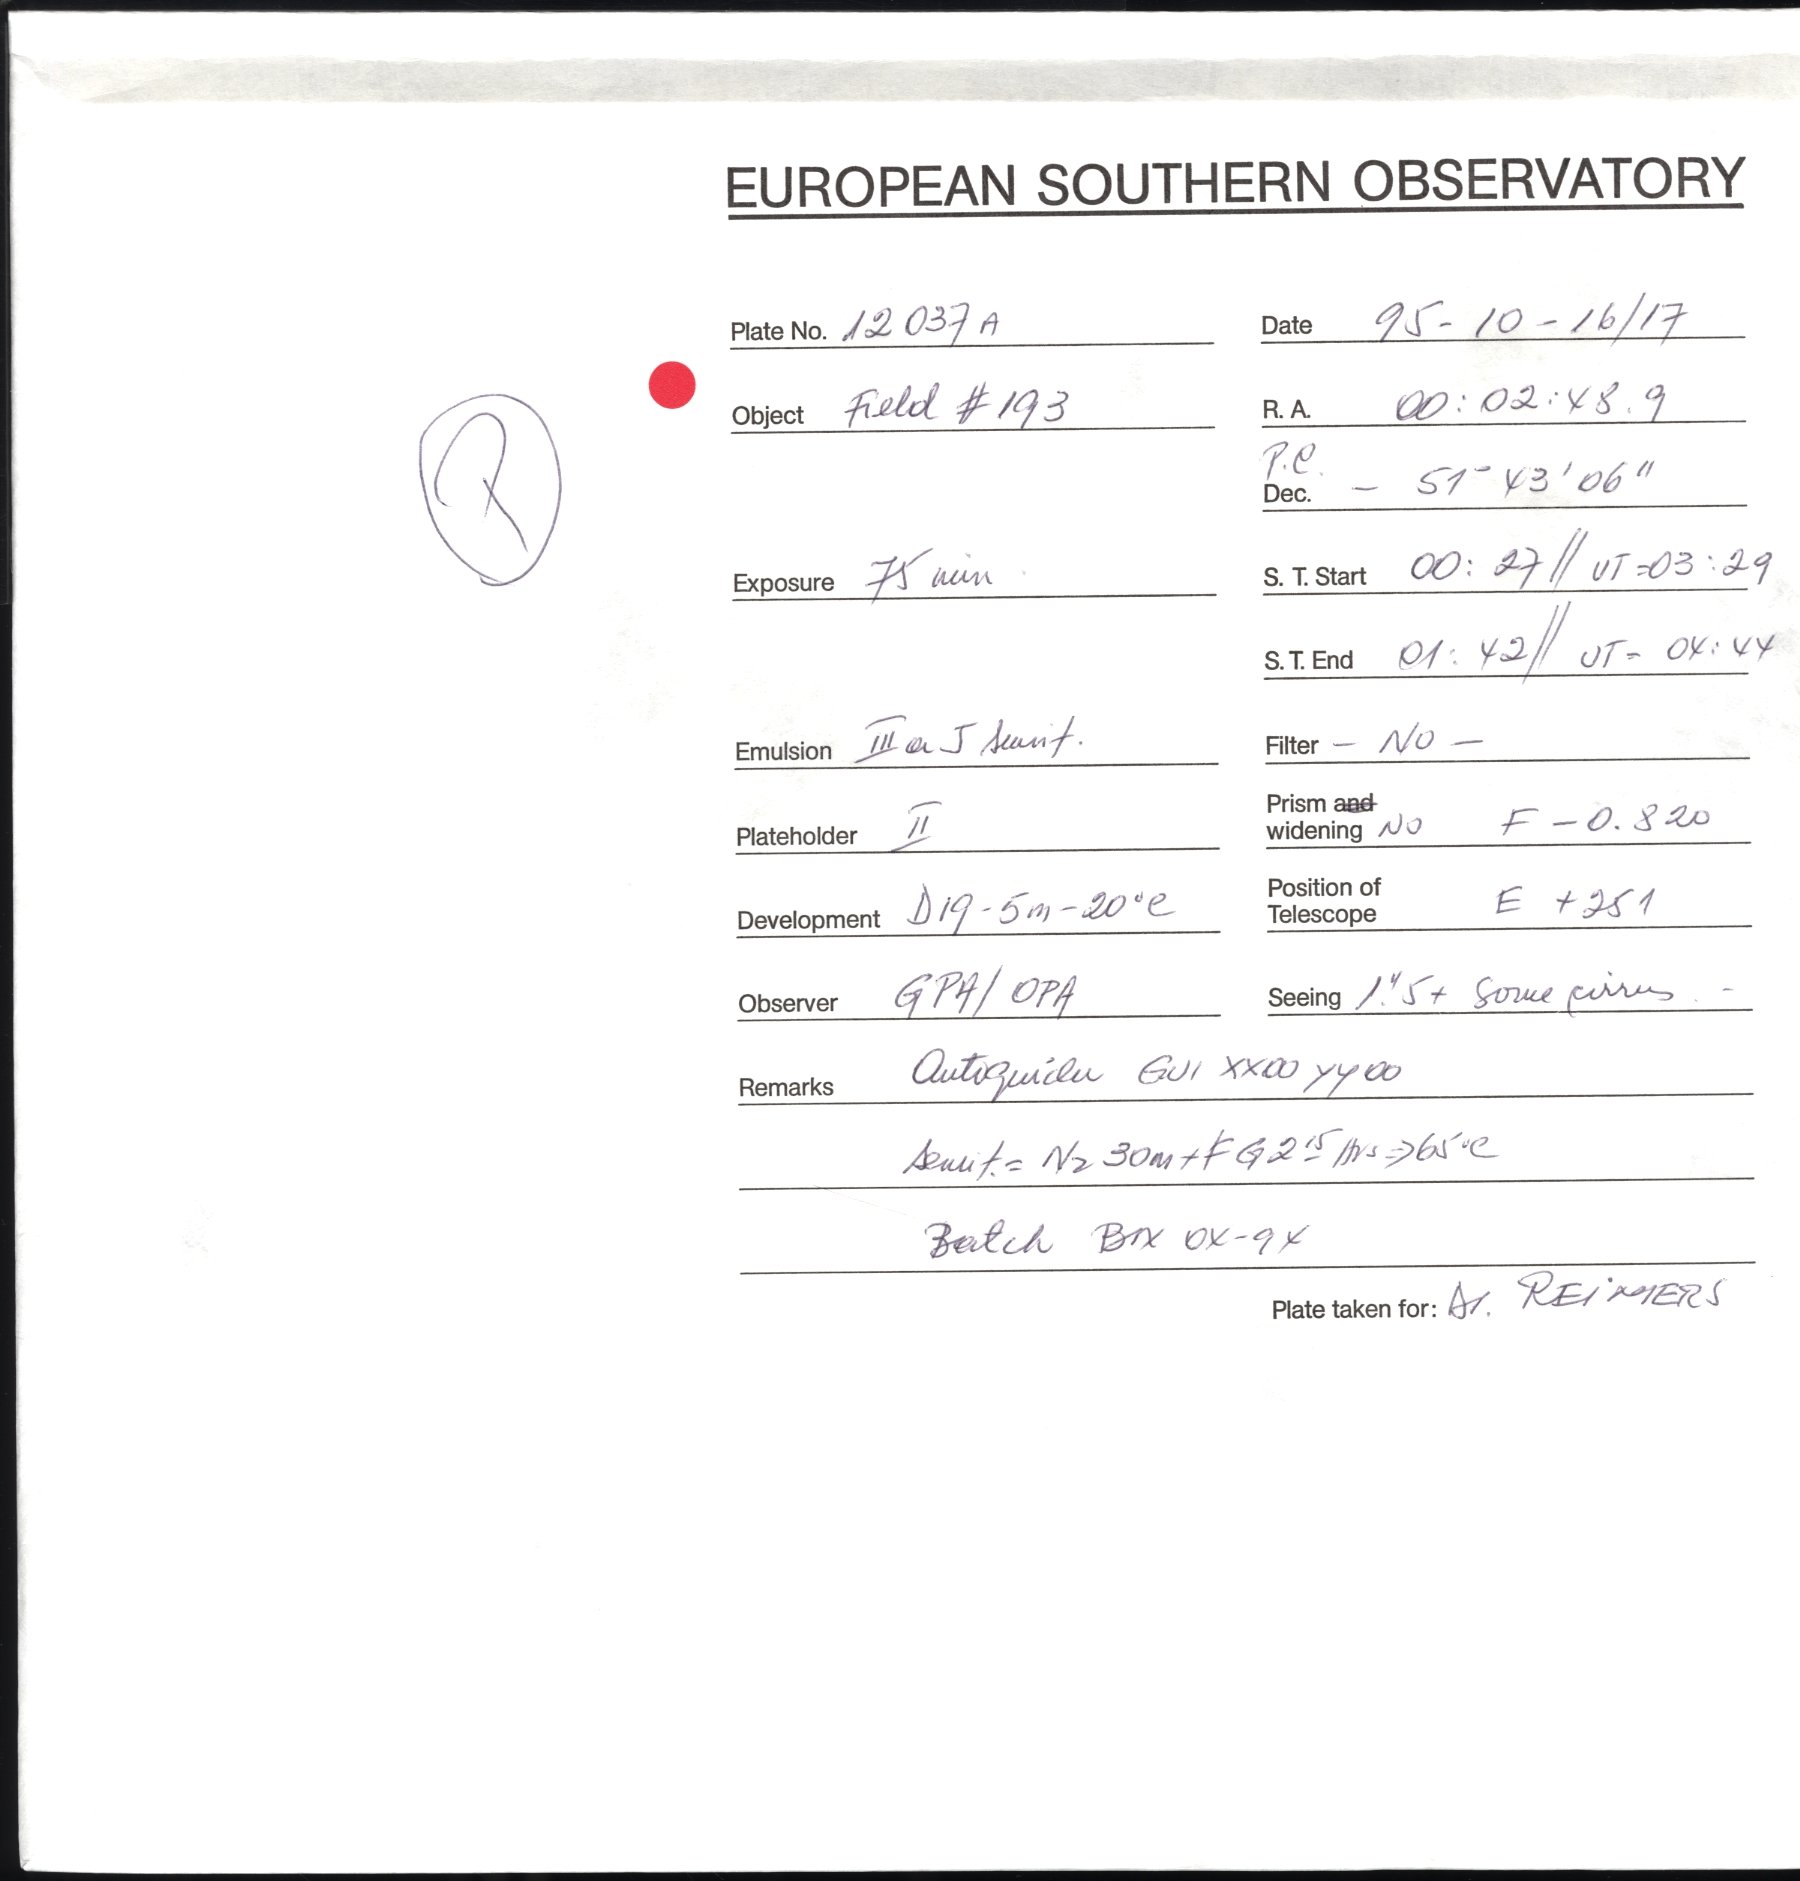 EUROPEAN SOUTHERN OBSERVATORY
Plate No. 12037A
Date 95-10-16/17
Object Field #193
R. A. 00:02:48.9
P.C.
Dec. - 51° 43' 06"
R
Exposure 75 min
S. T. Start 00:27 // UT=03:29
S. T. End 01:42 // UT= 04:44
Emulsion III a J Sensit.
Filter - NO -
Plateholder II
Prism and
widening NO F -0.820
Development D19-5m-20°C
Position of
Telescope E +251
Observer GPA/OPA
Seeing 1."5+ Some cirrus
Remarks Autoguider GUI XX00 YY00
Sensit.= N2 30m+FG 2 15 Hrs=>65°C
Batch Box 0X-94
Plate taken for: Dr. REIMERS